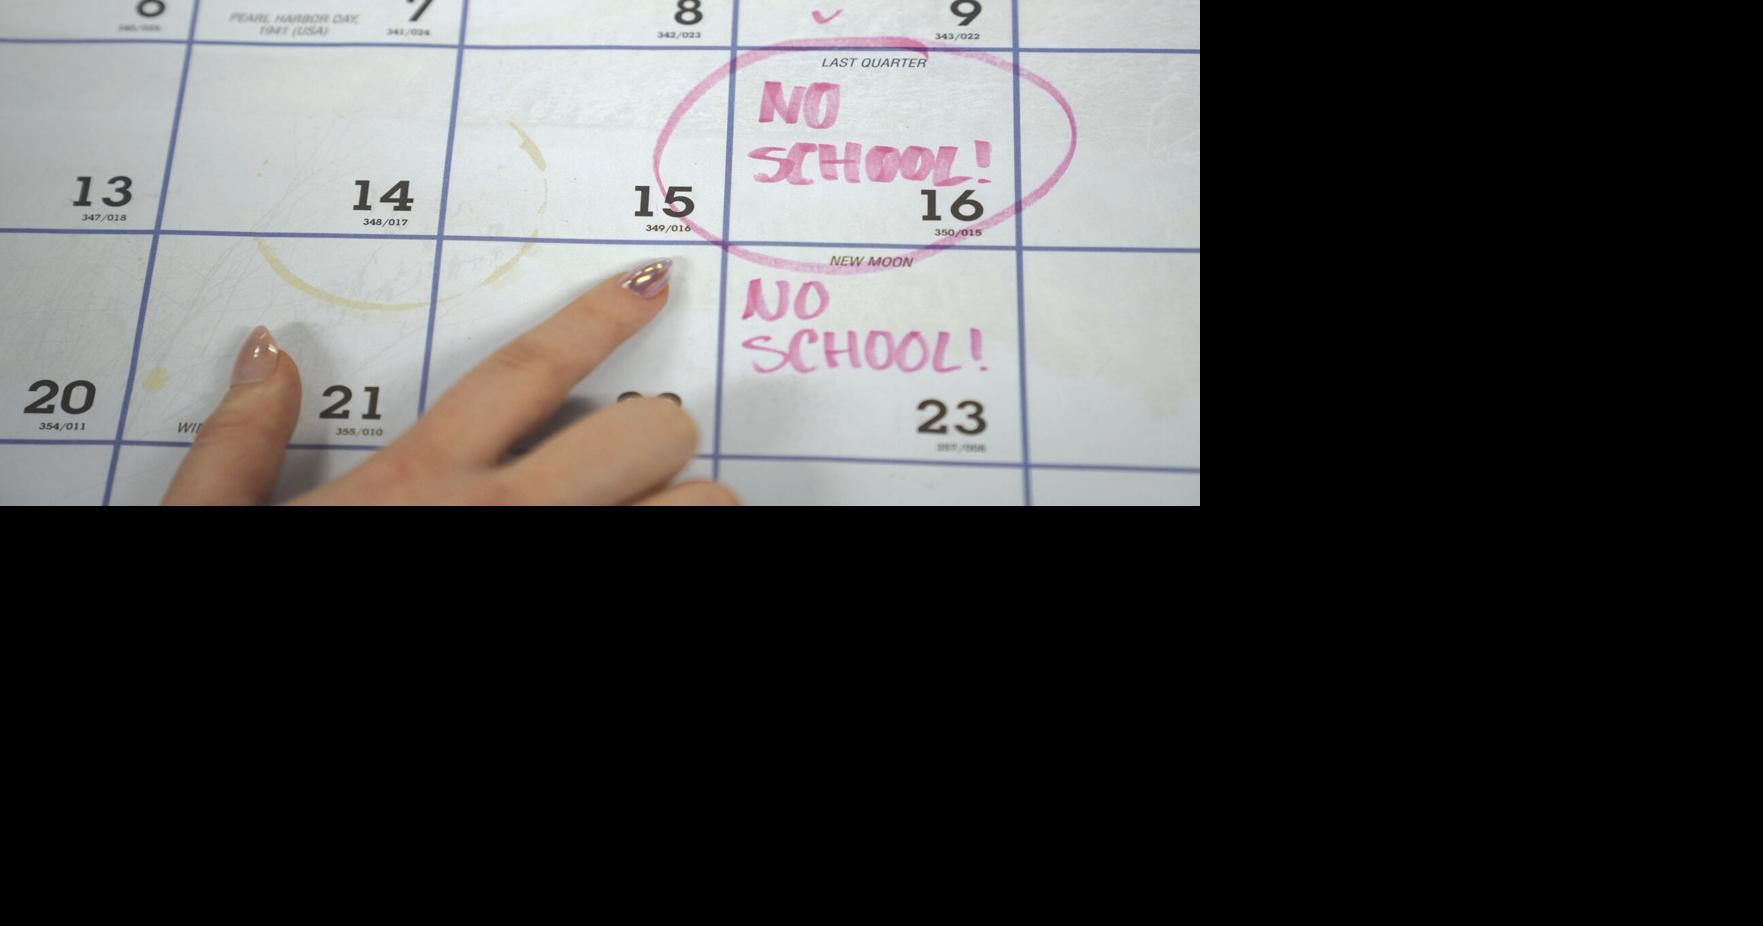 6
PEARL HARBOR DAY,
1941 (USA)
7
341/024
8
342/023
9
343/022
LAST QUARTER
NO
SCHOOL!
13
347/018
14
348/017
15
349/016
16
350/015
NEW MOON
NO
SCHOOL!
20
354/011
21
355/010
23
357/008